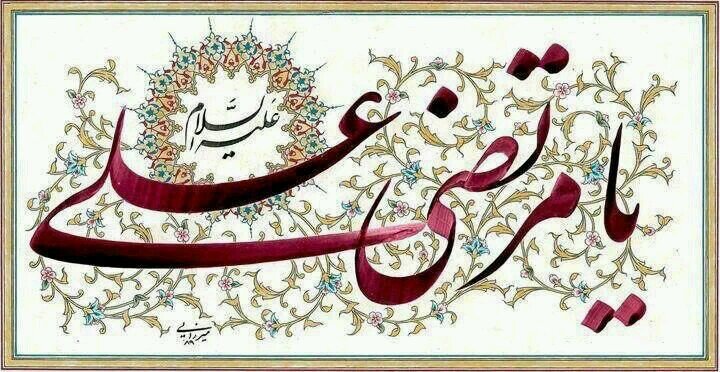 یا مرتضی علی
علیه السلام
میرزایی